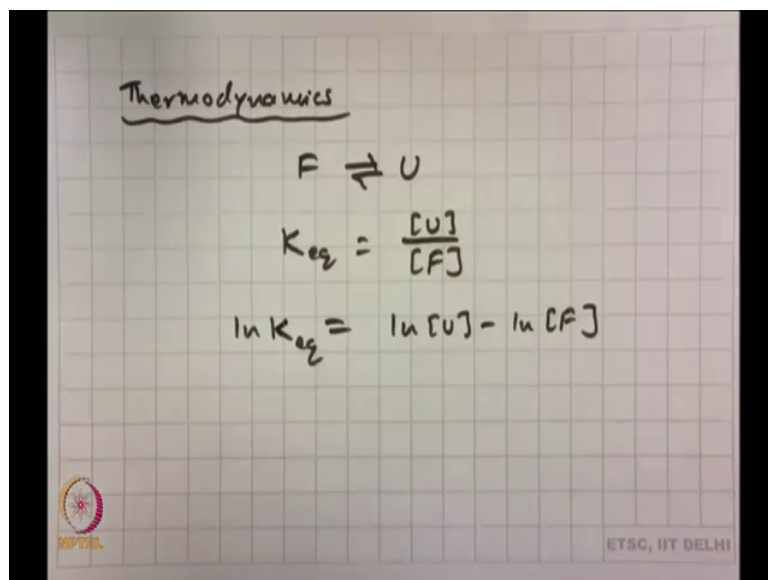 Thermodynamics
F ⇌ U
K_eq = [U]/[F]
ln K_eq = ln [U] - ln [F]
NPTEL
ETSC, IIT DELHI